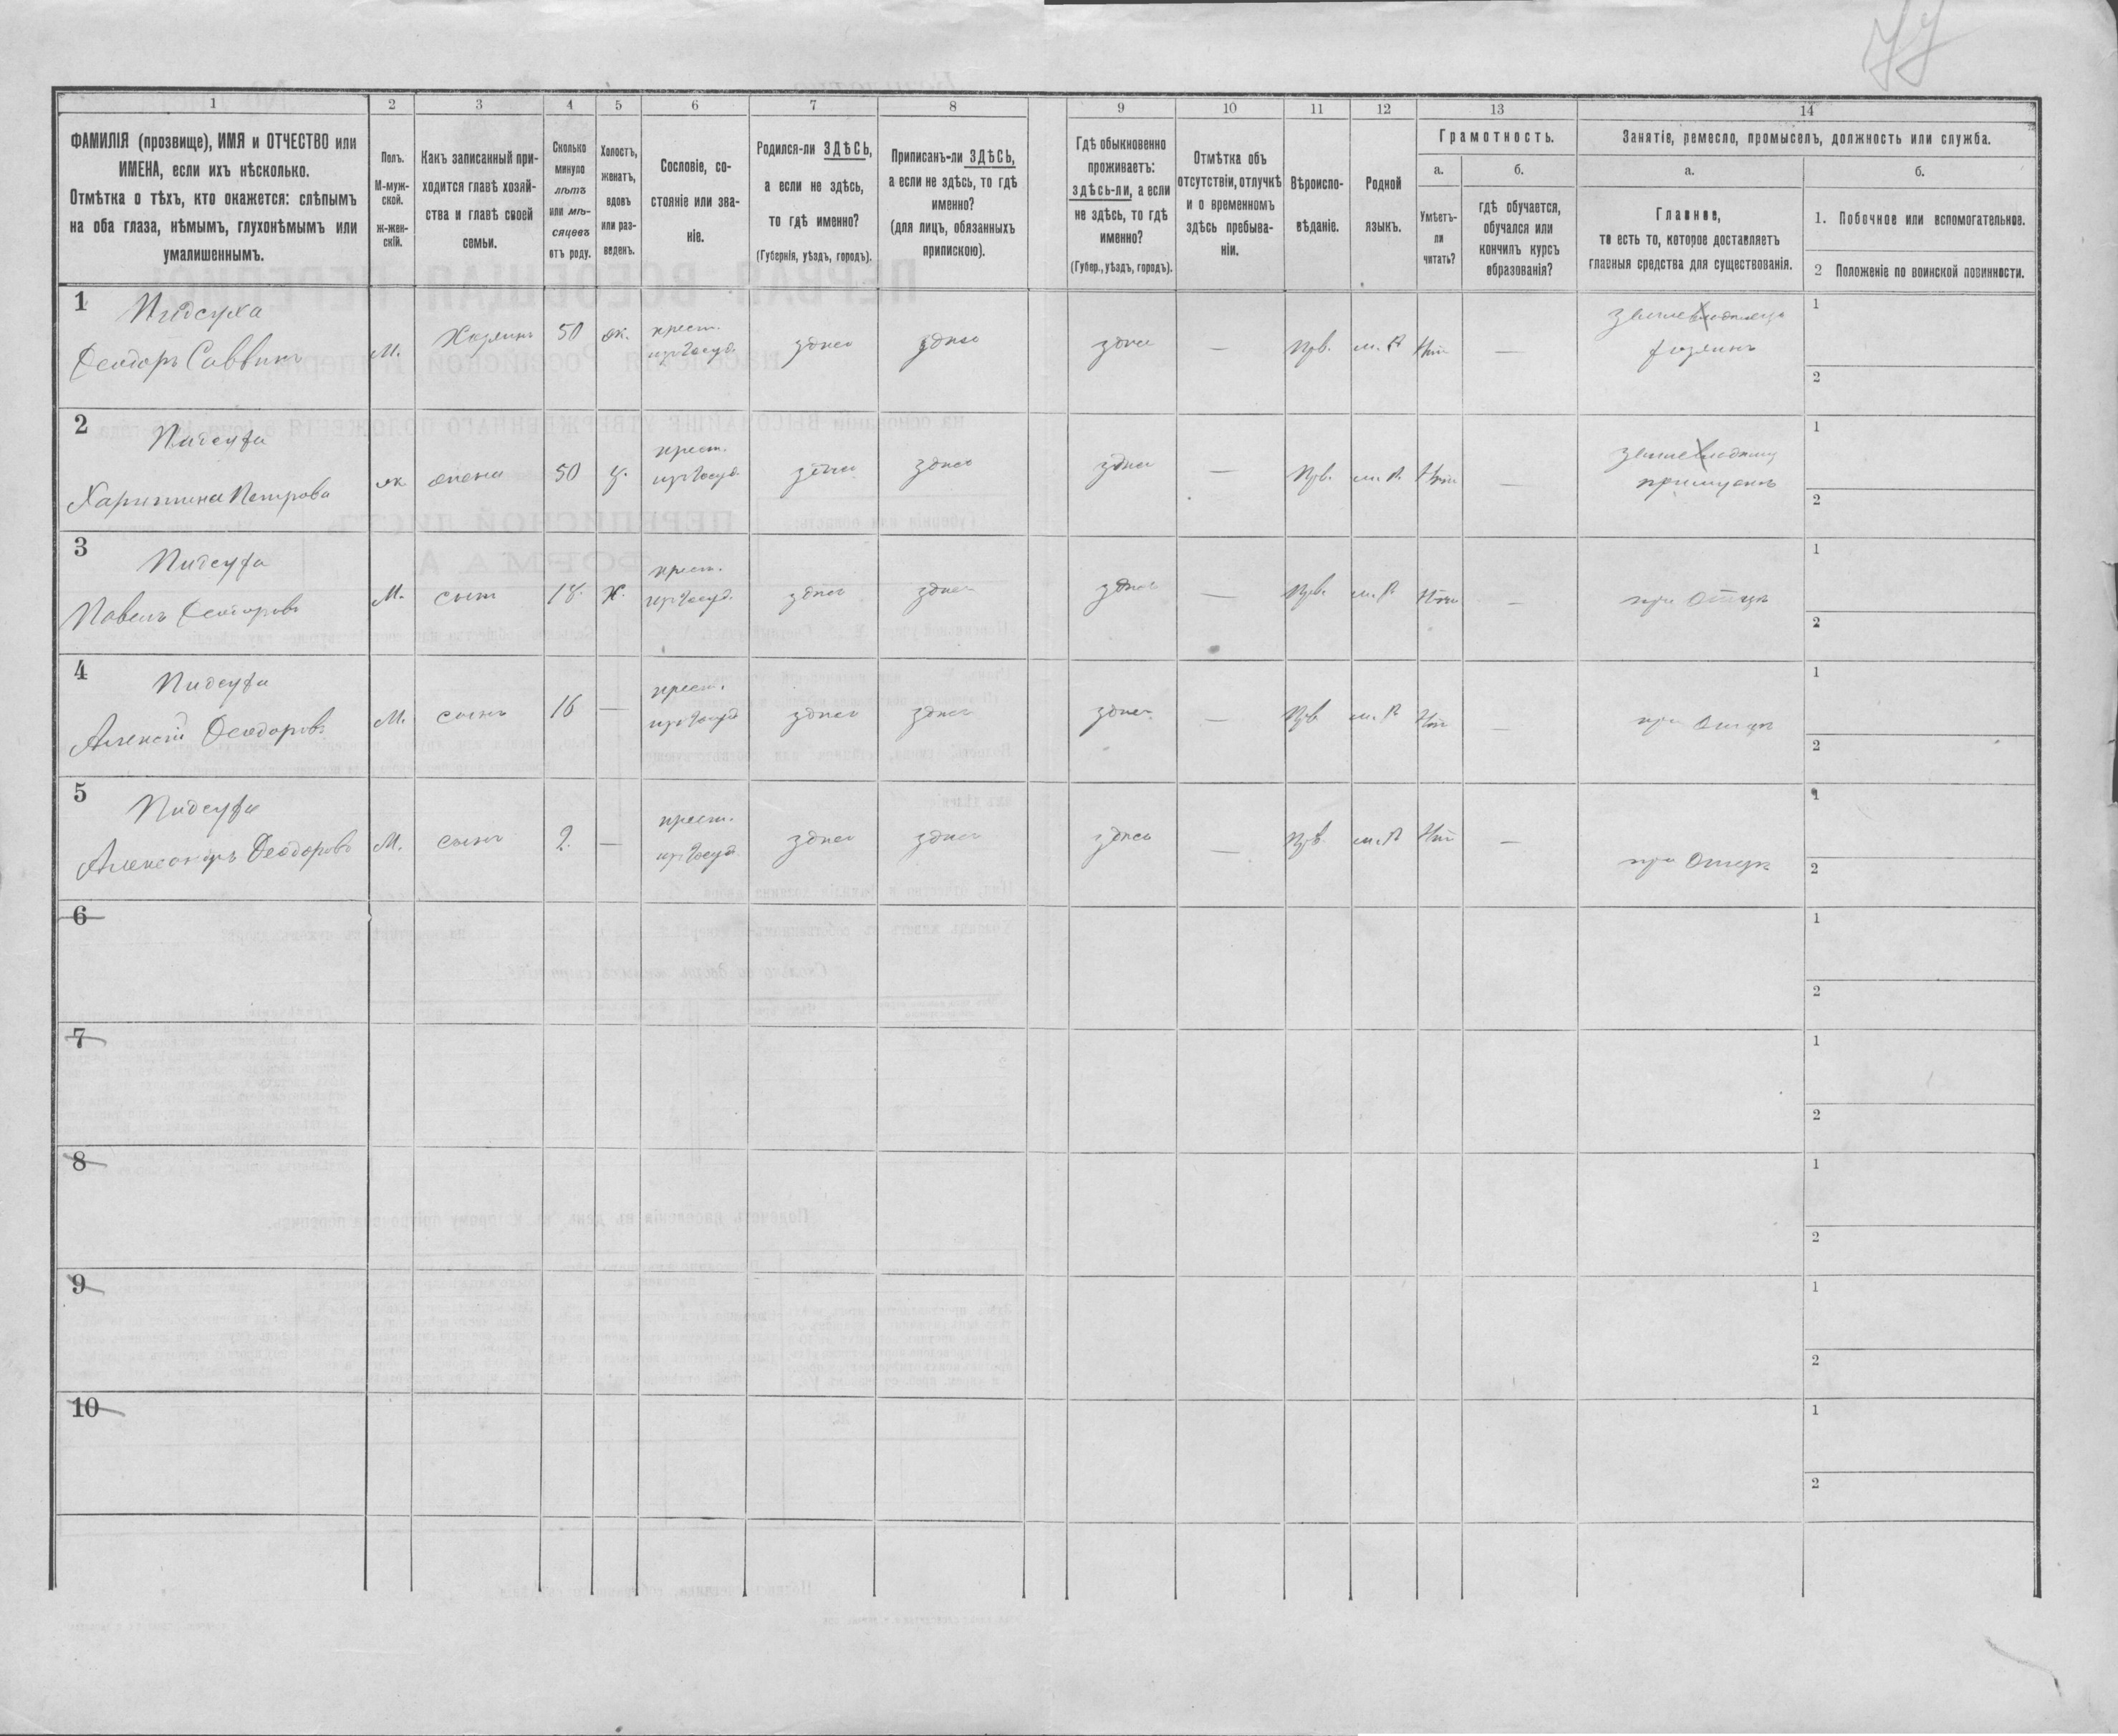 77
1 2 3 4 5 6 7 8 9 10 11 12 13 14
ФАМИЛІЯ (прозвище), ИМЯ и ОТЧЕСТВО или
ИМЕНА, если ихъ нѣсколько.
Отмѣтка о тѣхъ, кто окажется: слѣпымъ
на оба глаза, нѣмымъ, глухонѣмымъ или
умалишеннымъ.
Полъ.
М-муж-
ской.
Ж-жен-
скій.
Какъ записанный при-
ходится главѣ хозяй-
ства и главѣ своей
семьи.
Сколько
минуло
лѣтъ
или мѣ-
сяцевъ
отъ роду.
Холостъ,
женатъ,
вдовъ
или раз-
веденъ.
Сословіе, со-
стояніе или зва-
ніе.
Родился-ли ЗДѢСЬ,
а если не здѣсь,
то гдѣ именно?
(Губернія, уѣздъ, городъ).
Приписанъ-ли ЗДѢСЬ,
а если не здѣсь, то гдѣ
именно?
(для лицъ, обязанныхъ
припискою).
Гдѣ обыкновенно
проживаетъ:
здѣсь-ли, а если
не здѣсь, то гдѣ
именно?
(Губер., уѣздъ, городъ).
Отмѣтка объ
отсутствіи, отлучкѣ
и о временномъ
здѣсь пребыва-
ніи.
Вѣроиспо-
вѣданіе.
Родной
языкъ.
Грамотность.
а.
Умѣетъ-
ли
читать?
б.
гдѣ обучается,
обучался или
кончилъ курсъ
образованія?
Занятіе, ремесло, промыселъ, должность или служба.
а.
Главное,
то есть то, которое доставляетъ
главныя средства для существованія.
б.
1. Побочное или вспомогательное.
2 Положеніе по воинской повинности.
1 Пидсуха
Феодоръ Саввинъ
М. Хозяинъ 50 ж. крест. здѣсь здѣсь здѣсь — Прв. Нѣт —
хозяинъ
1
2
2 Пидсуха
Харитина Петрова
ж жена 50 крест. здѣсь здѣсь здѣсь — Прв. Нѣт —
1
2
3 Пидсуха
Павелъ Феодоровъ
М. сынъ 18. Х. крест. здѣсь здѣсь здѣсь — Прв. Нѣт —
при Отцѣ
1
2
4 Пидсуха
Алексѣй Феодоровъ
М. сынъ 16 — крест. здѣсь здѣсь здѣсь — Прв Нѣт —
при Отцѣ
1
2
5 Пидсуха
Александръ Феодоровъ
М. сынъ 2. — крест. здѣсь здѣсь здѣсь — Прв. Нѣт —
при Отцѣ
1
2
6
1
2
7
1
2
8
1
2
9
1
2
10
1
2